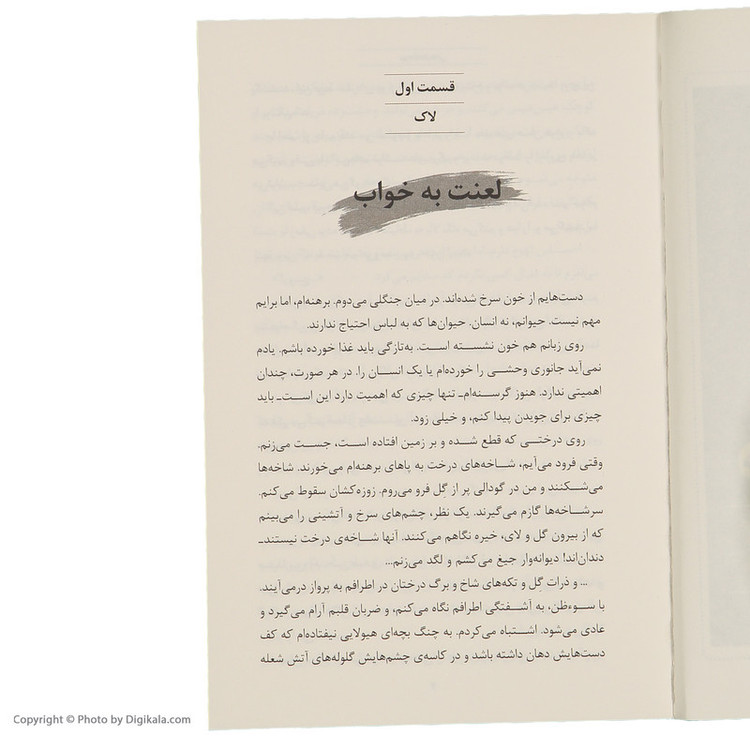 قسمت اول
لاک
لعنت به خواب
دست‌هایم از خون سرخ شده‌اند. در میان جنگلی می‌دوم. برهنه‌ام، اما برایم
مهم نیست. حیوانم، نه انسان. حیوان‌ها که به لباس احتیاج ندارند.
روی زبانم هم خون نشسته است. به‌تازگی باید غذا خورده باشم. یادم
نمی‌آید جانوری وحشی را خورده‌ام یا یک انسان را. در هر صورت، چندان
اهمیتی ندارد. هنوز گرسنه‌ام- تنها چیزی که اهمیت دارد این است- باید
چیزی برای جویدن پیدا کنم، و خیلی زود.
روی درختی که قطع شده و بر زمین افتاده است، جست می‌زنم.
وقتی فرود می‌آیم، شاخه‌های درخت به پاهای برهنه‌ام می‌خورند. شاخه‌ها
می‌شکنند و من در گودالی پر از گِل فرو می‌روم. زوزه‌کشان سقوط می‌کنم.
سرشاخه‌ها گازم می‌گیرند. یک نظر، چشم‌های سرخ و آتشینی را می‌بینم
که از بیرون گل و لای، خیره نگاهم می‌کنند. آنها شاخه‌ی درخت نیستند-
دندان‌اند! دیوانه‌وار جیغ می‌کشم و لگد می‌زنم...
... و ذرات گِل و تکه‌های شاخ و برگ درختان در اطرافم به پرواز درمی‌آیند.
با سوءظن، به آشفتگی اطرافم نگاه می‌کنم، و ضربان قلبم آرام می‌گیرد و
عادی می‌شود. اشتباه می‌کردم. به چنگ بچه‌ای هیولایی نیفتاده‌ام که کف
دست‌هایش دهان داشته باشد و در کاسه‌ی چشم‌هایش گلوله‌های آتش شعله
Copyright © Photo by Digikala.com